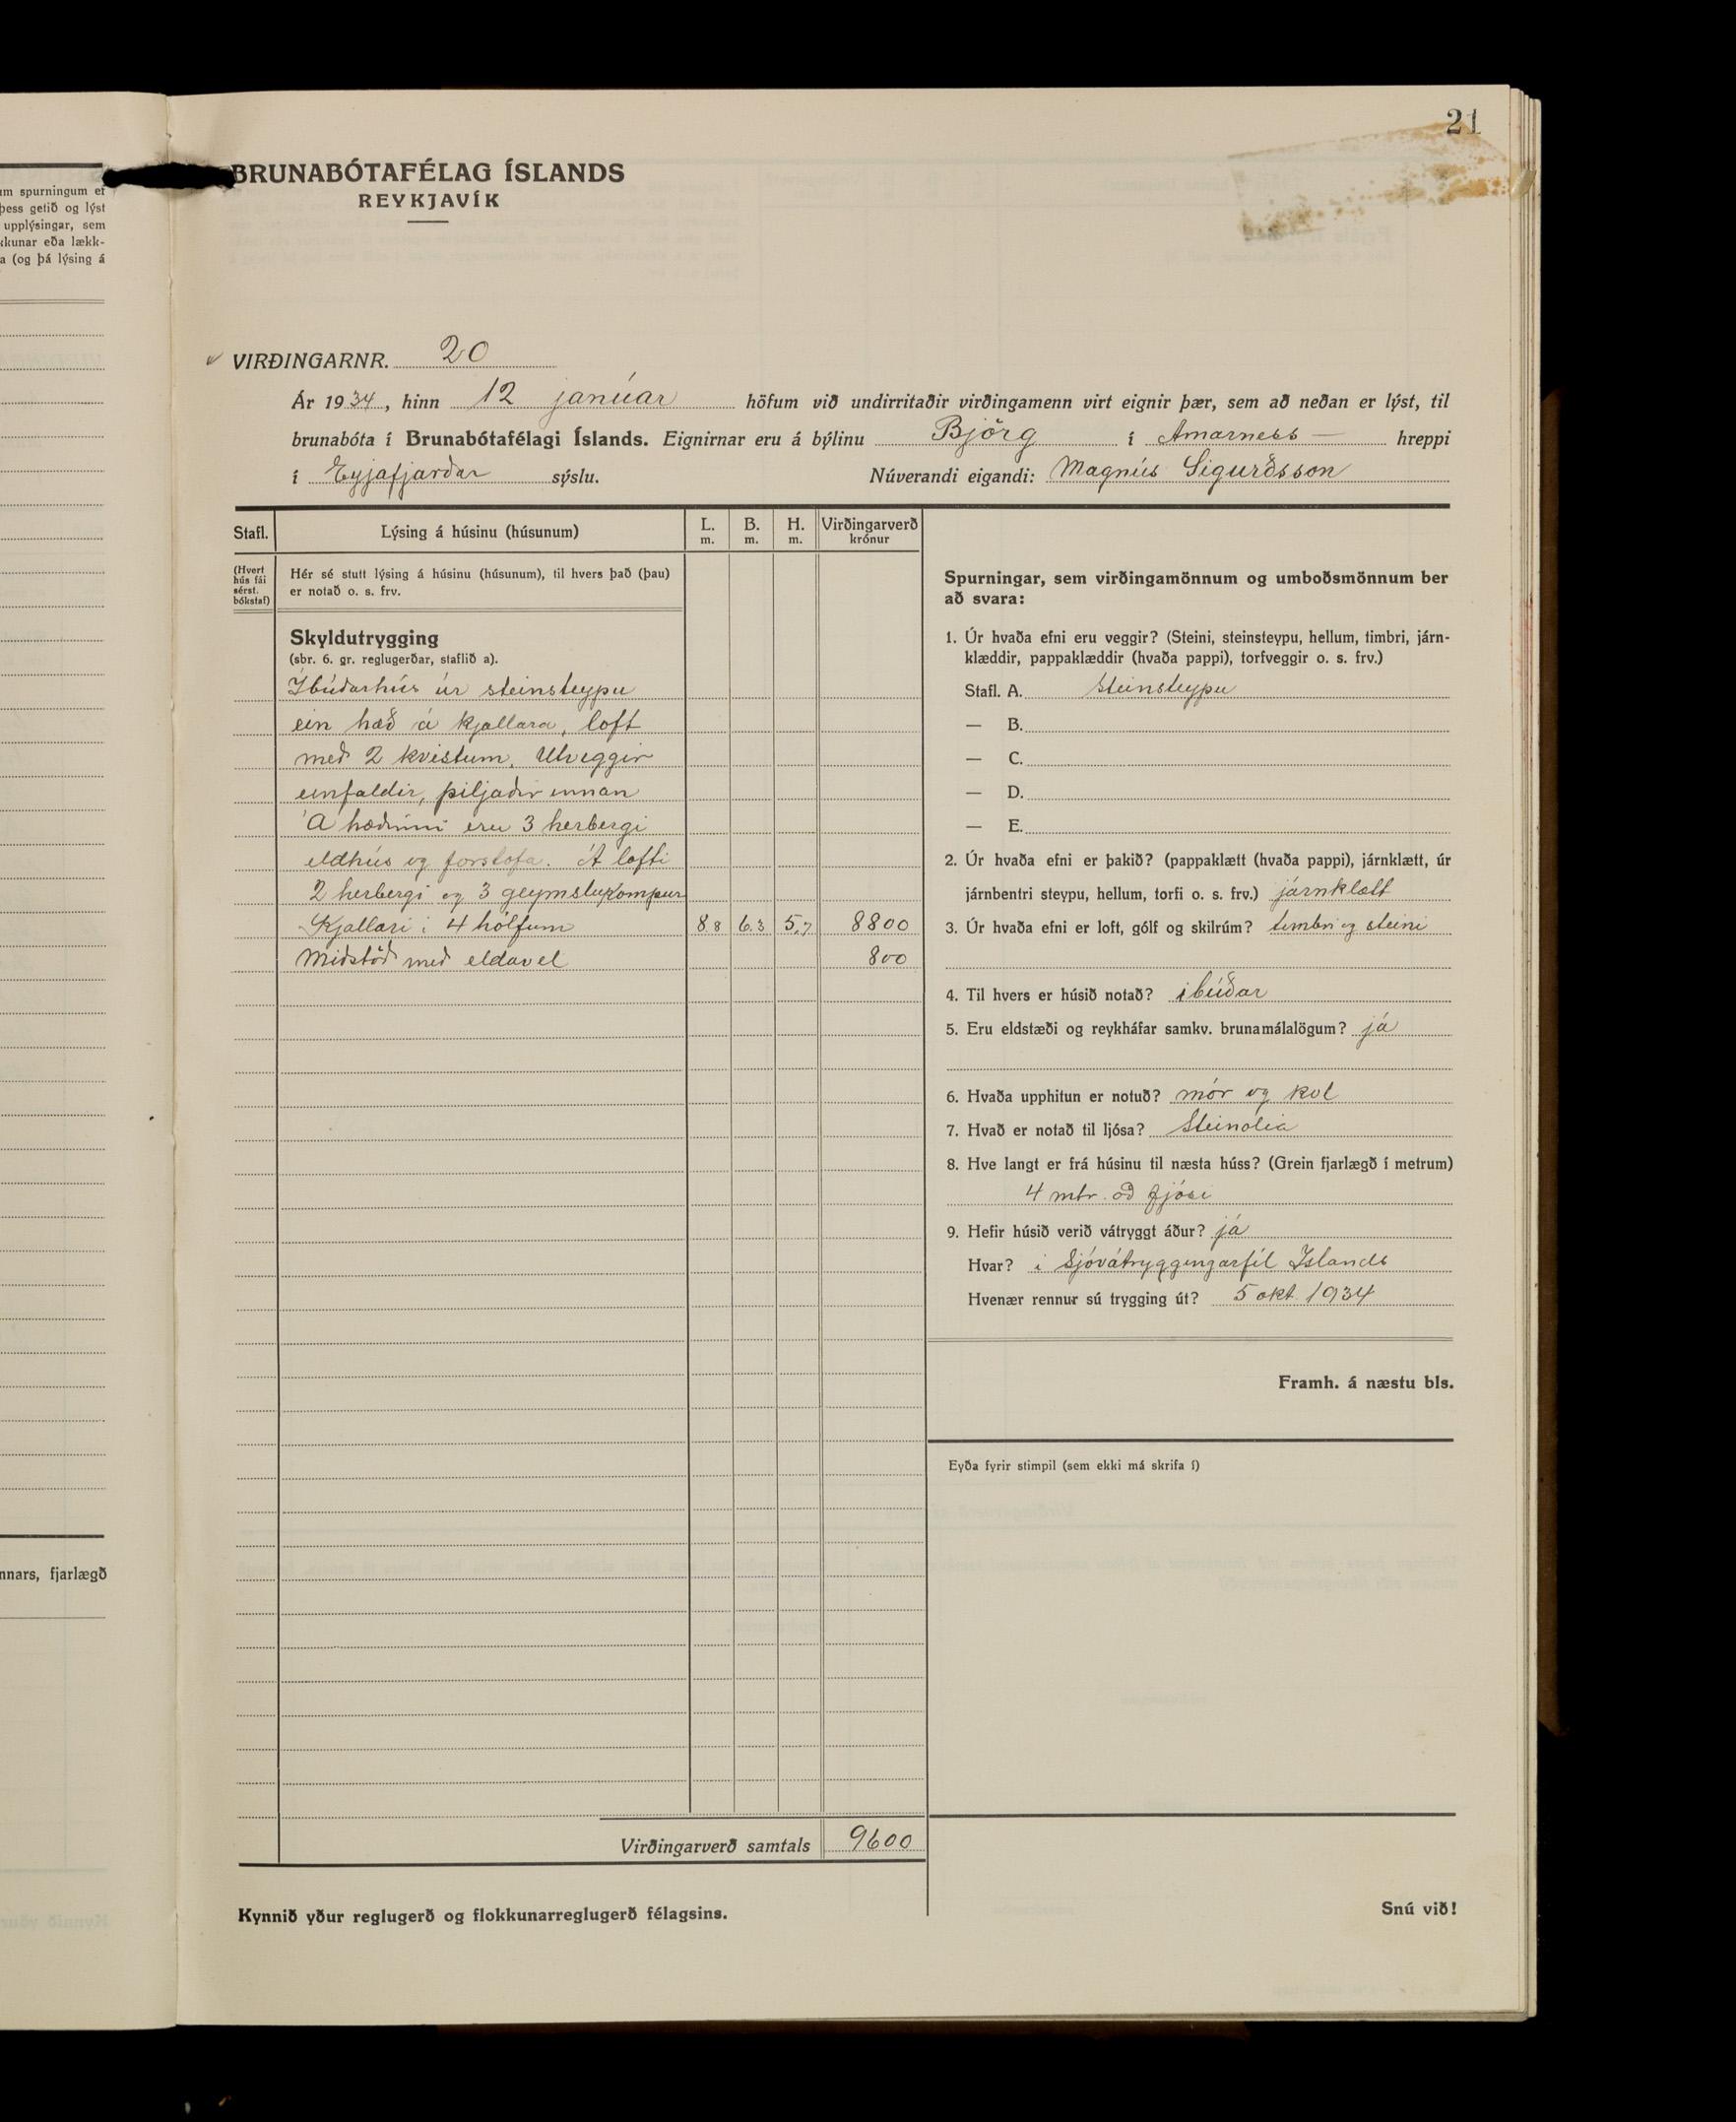 21
um spurningum ef
þess getið og lýst
upplýsingar, sem
kkunar eða lækk-
a (og þá lýsing á
nnars, fjarlægð
BRUNABÓTAFÉLAG ÍSLANDS
REYKJAVÍK
VIRÐINGARNR. 20
Ár 1934, hinn 12 janúar höfum við undirritaðir virðingamenn virt eignir þær, sem að neðan er lýst, til
brunabóta í Brunabótafélagi Íslands. Eignirnar eru á býlinu Björg í Arnarness- hreppi
í Eyjafjarðar sýslu. Núverandi eigandi: Magnús Sigurðsson
Stafl. Lýsing á húsinu (húsunum) L. m. B. m. H. m. Virðingarverð krónur
(Hvert hús fái sérst. bókstaf)
Hér sé stutt lýsing á húsinu (húsunum), til hvers það (þau)
er notað o. s. frv.
Skyldutrygging
(sbr. 6. gr. reglugerðar, staflið a).
Íbúðarhús úr steinsteypu
ein hæð á kjallara, loft
með 2 kvistum. Útveggir
einfaldir, þiljaðir innan
Á hæðinni eru 3 herbergi
eldhús og forstofa. Á lofti
2 herbergi og 3 geymslukompur
Kjallari í 4 hólfum 8.8 6.3 5.7 8800
Miðstöð með eldavel 800
Virðingarverð samtals 9600
Kynnið yður reglugerð og flokkunarreglugerð félagsins.
Spurningar, sem virðingamönnum og umboðsmönnum ber
að svara:
1. Úr hvaða efni eru veggir? (Steini, steinsteypu, hellum, timbri, járn-
klæddir, pappaklæddir (hvaða pappi), torfveggir o. s. frv.)
Stafl. A. Steinsteypu
— B.
— C.
— D.
— E.
2. Úr hvaða efni er þakið? (pappaklætt (hvaða pappi), járnklætt, úr
járnbentri steypu, hellum, torfi o. s. frv.) járnklætt
3. Úr hvaða efni er loft, gólf og skilrúm? timbri og steini
4. Til hvers er húsið notað? íbúðar
5. Eru eldstæði og reykháfar samkv. brunamálalögum? já
6. Hvaða upphitun er notuð? mór og kol
7. Hvað er notað til ljósa? Steinolía
8. Hve langt er frá húsinu til næsta húss? (Grein fjarlægð í metrum)
4 mtr. að fjósi
9. Hefir húsið verið vátryggt áður? já
Hvar? í Sjóvátryggingarfél Islands
Hvenær rennur sú trygging út? 5 okt. 1934
Framh. á næstu bls.
Eyða fyrir stimpil (sem ekki má skrifa í)
Snú við!